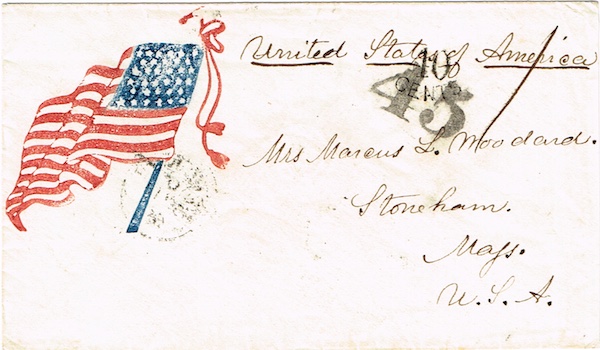 United States of America
10
CENTS
45
Mrs Marcus L. Woodard.
Stoneham.
Mass.
U. S. A.